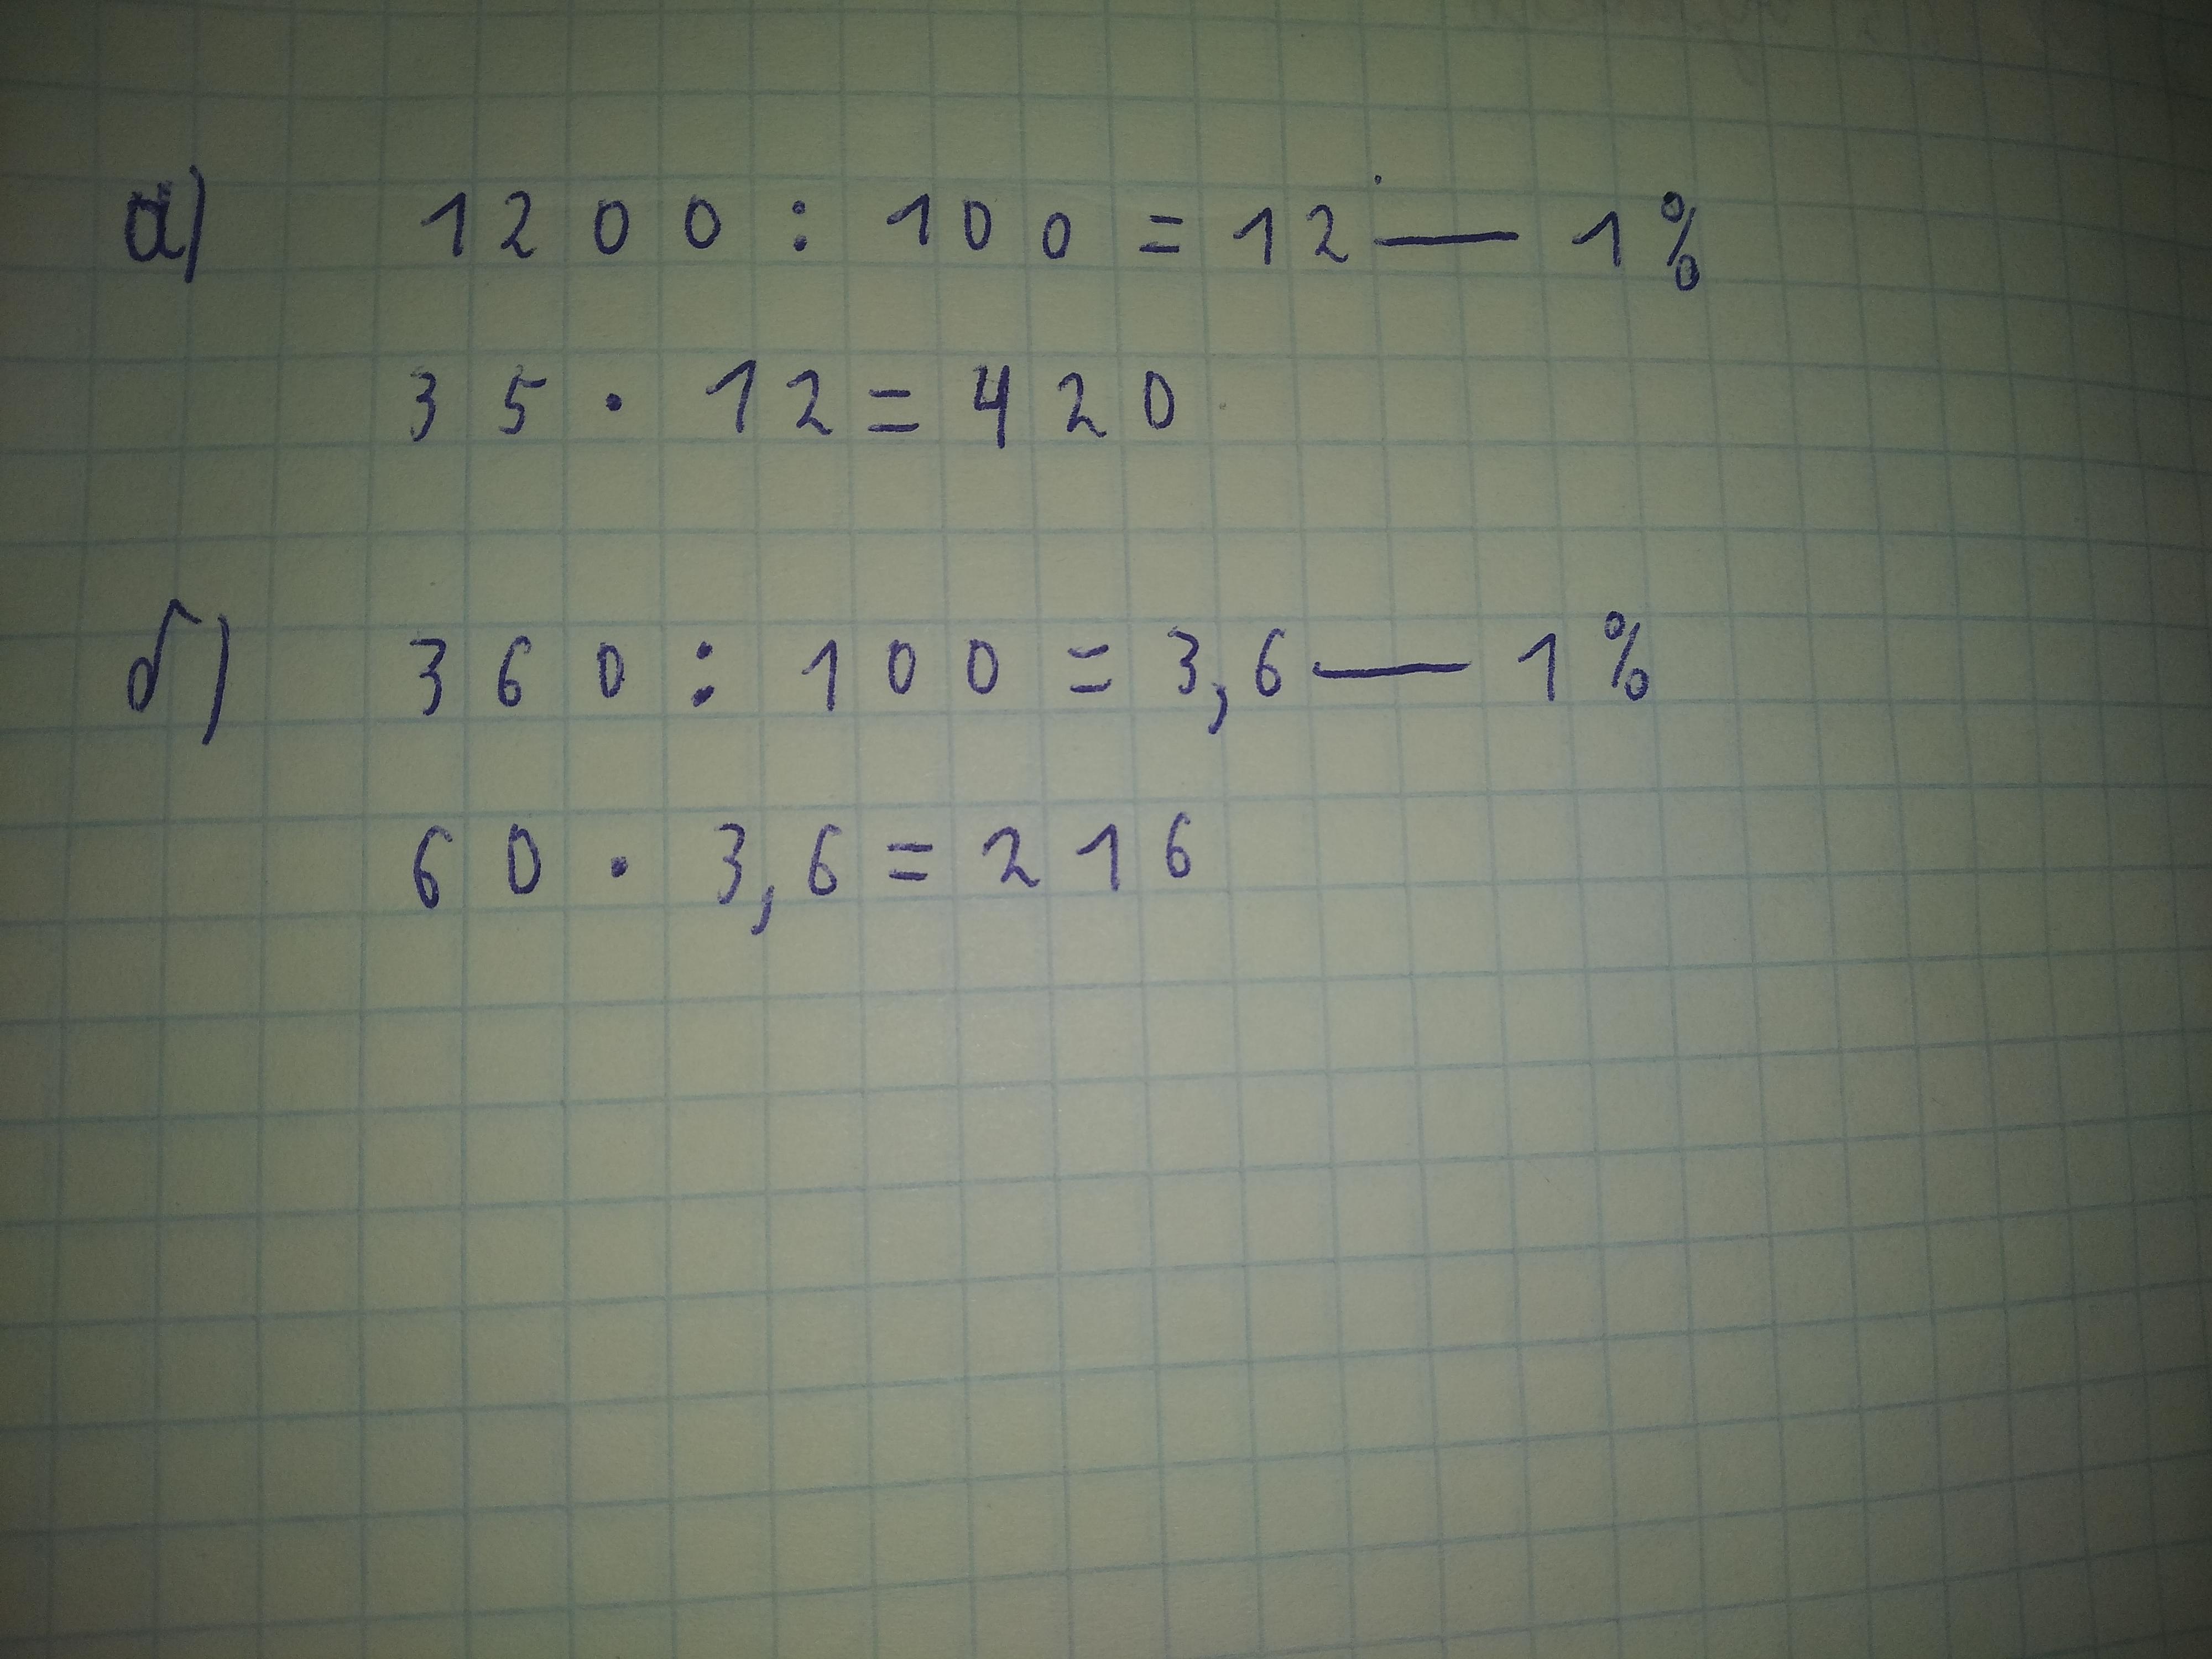 а) 1200 : 100 = 12 — 1%
35 · 12 = 420
б) 360 : 100 = 3,6 — 1%
60 · 3,6 = 216